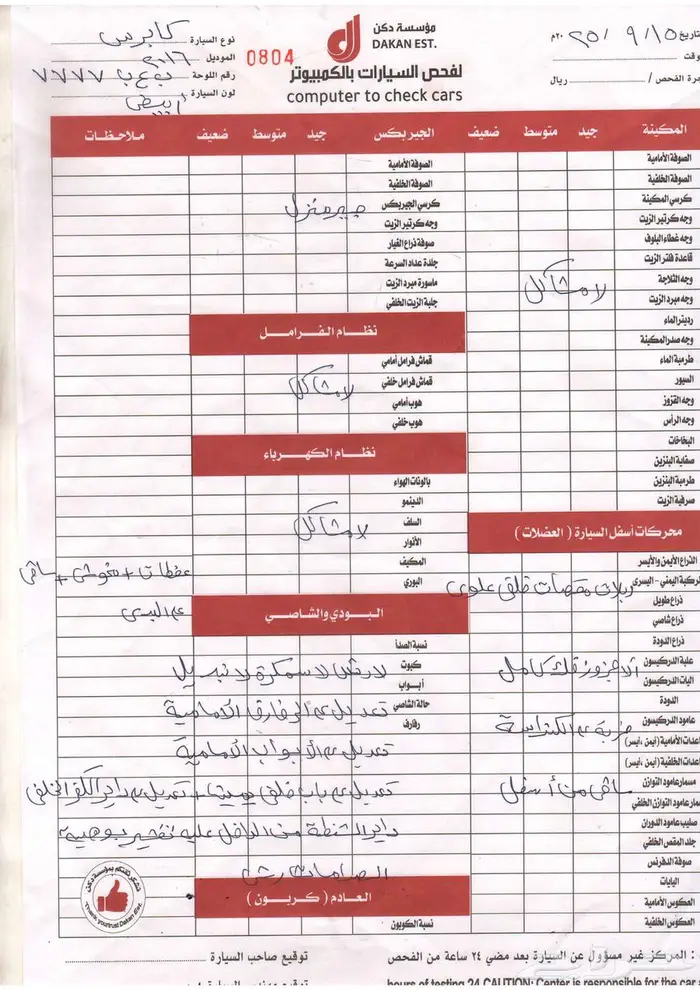 مؤسسة دكن
DAKAN EST.
لفحص السيارات بالكمبيوتر
computer to check cars
0804
تاريخ ١٥ / ٩ / ٢٥ ٢٠م
وقت
مرة الفحص / ريال
نوع السيارة كابرس
الموديل ٢٠١٦
رقم اللوحة ٧٧٧٧
لون السيارة أبيض
المكينة جيد متوسط ضعيف
الصوفة الأمامية
الصوفة الخلفية
كرسي المكينة
وجه كرتير الزيت
وجه غطاء البلوف
قاعدة فلتر الزيت
وجه الثلاجة
وجه مبرد الزيت
لا مشاكل
رديتر الماء
وجه صدر المكينة
طرمبة الماء
السيور
وجه القزوز
وجه الرأس
البخاخات
صفاية البنزين
طرمبة البنزين
صرفية الزيت
محركات أسفل السيارة ( العضلات )
الذراع الأيمن والأيسر
لركبة اليمنى - اليسرى
جلد مقصات خلفي علوي
ذراع طويل
ذراع شاصي
ذراع الدودة
علبة الدركسيون
اليات الدركسيون
كامل
الدودة
عامود الدركسيون
ضربة
اعدات الأمامية (أيمن ،أيسر)
اعدات الخلفية (أيمن ،أيسر)
مسمار عامود التوازن
من أسفل
مار عامود التوازن الخلفي
صليب عامود الدوران
جلد المقص الخلفي
صوفة الدفرنس
اليايات
العكوس الأمامية
العكوس الخلفية
الجيربكس جيد متوسط ضعيف ملاحظات
الصوفة الأمامية
الصوفة الخلفية
كرسي الجيربكس
جير منزل
وجه كرتير الزيت
صوفة ذراع الغيار
جلدة عداد السرعة
ماسورة مبرد الزيت
جلبة الزيت الخلفي
نظام الفرامل
قماش فرامل أمامي
قماش فرامل خلفي
لا مشاكل
هوب أمامي
هوب خلفي
نظام الكهرباء
بالونات الهواء
الدينمو
السلف
لا مشاكل
الأنوار
المكيف
البوري
البودي والشاصي
نسبة الصدأ
كبوت
لا رش لا سمكرة لا تبديل
أبواب
حالة الشاصي
تعديل ع الرفارف الأمامية
رفارف
تعديل ع الأبواب الأمامية
تعديل ع باب خلفي يمين + تعديل ع داير الكفر الخلفي
داير الشنطة من الداخل عليه تقشير بوهية
الصدامات رش
العادم ( كربون )
نسبة الكربون
نشكر ثقتكم بمؤسسة دكن
: المركز غير مسؤول عن السيارة بعد مضي ٢٤ ساعة من الفحص
توقيع صاحب السيارة
hours of testing 24 CAUTION: Center is responsible for the car